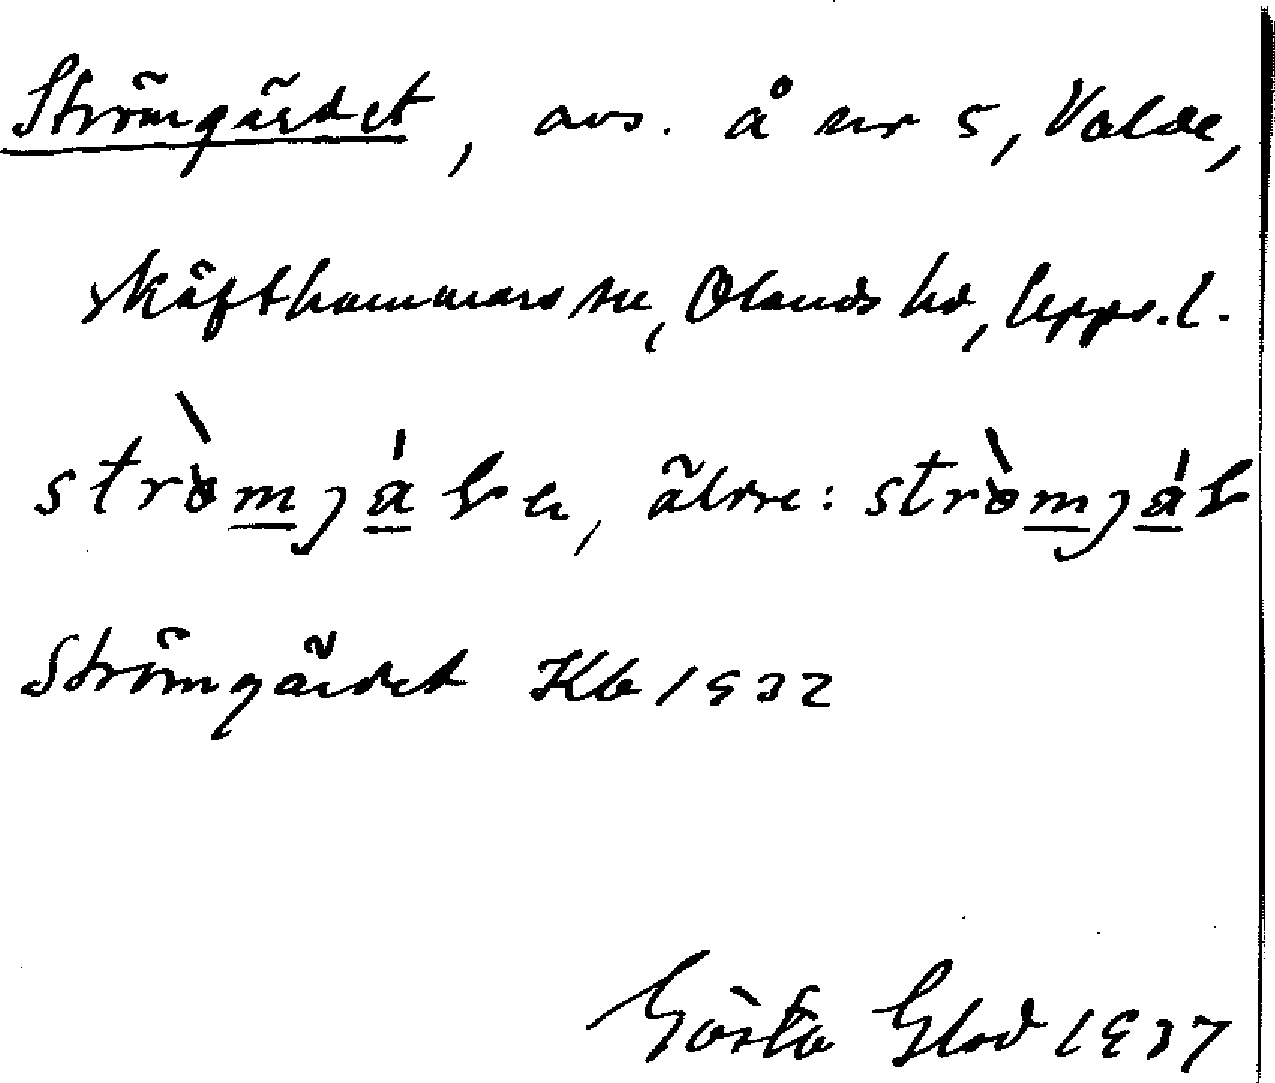 Strömgärdet, avs. å nr 5, Valde,
Skäfthammars sn, Olands hd, Upps. l.
strò̀mjáɽa, äldre: strò̀mjáɽ
Strömgärdet Kb 1932
Gösta Glad 1937